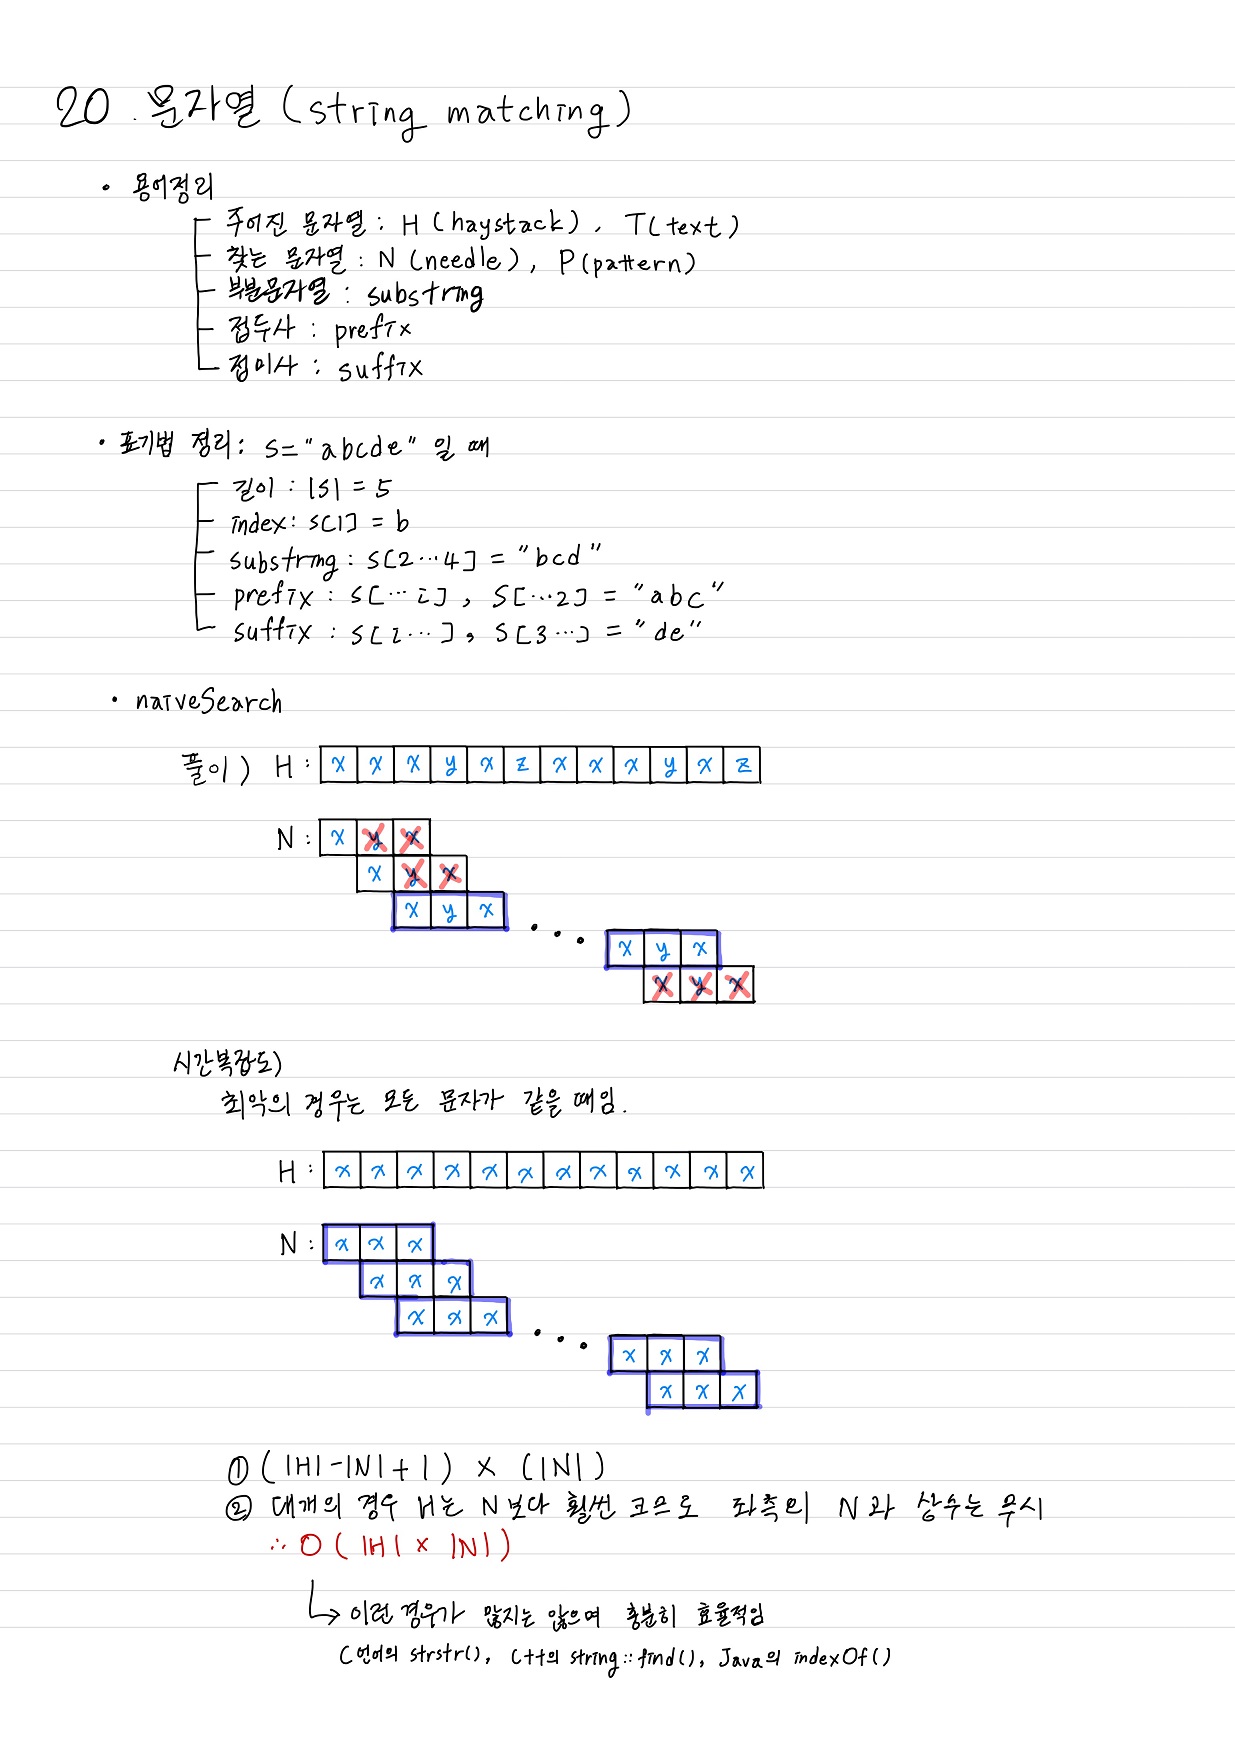 20. 문자열 (string matching)
• 용어정리
주어진 문자열 : H (haystack), T(text)
찾는 문자열 : N (needle), P(pattern)
부분문자열 : substring
접두사 : prefix
접미사 : suffix
• 표기법 정리: S="abcde" 일 때
길이 : |S| = 5
index: S[1] = b
substring : S[2…4] = "bcd"
prefix : S[…i], S[…2] = "abc"
suffix : S[i…], S[3…] = "de"
• naiveSearch
풀이) H : x x x y x z x x x y x z
N : x y x
x y x
x y x
...
x y x
x y x
시간복잡도)
최악의 경우는 모든 문자가 같을 때임.
H : x x x x x x x x x x x x
N : x x x
x x x
x x x
...
x x x
x x x
① (|H|-|N|+1) × (|N|)
② 대개의 경우 H는 N보다 훨씬 크므로 좌측의 N과 상수는 무시
∴ O(|H| × |N|)
↳ 이런 경우가 많지는 않으며 충분히 효율적임
C언어의 strstr(), C++의 string::find(), Java의 indexOf()